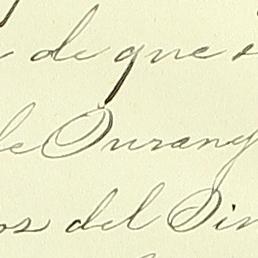 de que
de Durang
os del Sin